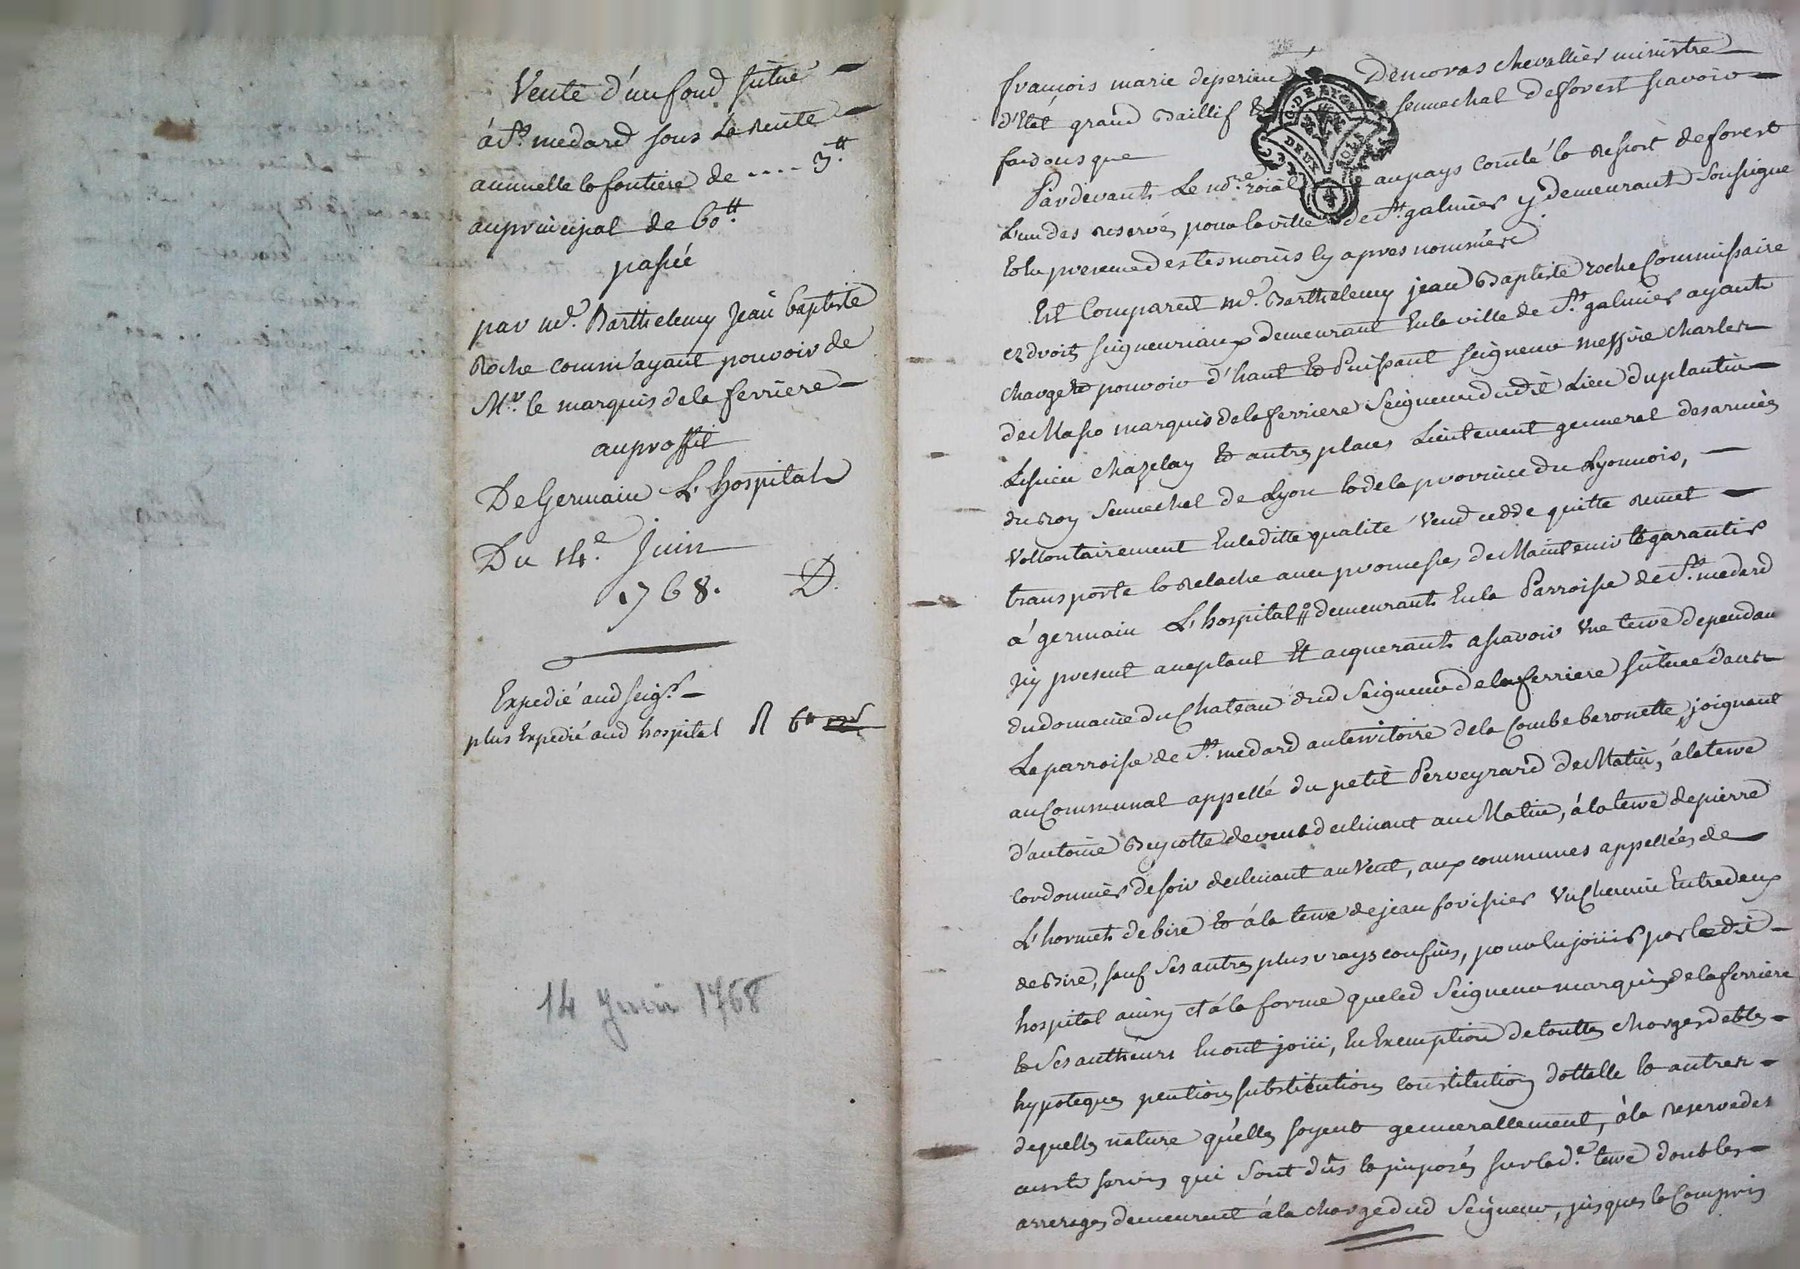 Vente d'un fond situé
à St. medard sous la rente
annuelle & fontiere de .... 3.tt
au principal de 60.tt
passée
par Me. Barthelemy Jean baptiste
Roche comm. ayant pouvoir de
Mr. le marquis de la ferriere
au proffit
De Germain L'hospital
Du 14.e Juin
1768. D.
Expedié aud seigr.
plus Expedié aud hospital R 6tt
14 Juin 1768
françois marie deperien Demoras chevallier ministre
d'Etat grand Baillif & sennechal deforest scavoir
faisons que
G. DE LYON
DEUX SOLS
4
Pardevant Le nore. roial au pays comté & ressort de forest
L'un des reservés pour la ville de St. galmier y demeurant soussigné
& la presence des tesmoins cy apres nommés
Est Compareu me. Barthelemy jean Baptiste roche Commissaire
ez droits seigneuriaux demeurant En la ville de St. galmier ayant
charge & pouvoir d'haut & Puissant seigneur messire charles
de Masso marquis de la ferriere Seigneur dudit Lieu du plantin
Lissieu chazelay & autres places Lieutenent general des armées
du Roy Sennechal de Lyon & de la province du Lyonnois,
Vollontairement En laditte qualité vend cedde quitte remet
transporte & relache avec promesses de Maintenir & garantir
à germain L'hospital demeurant En la Parroisse de St. medard
Icy present acceptant Et acquerant ascavoir Une terre dependan
du domaine du Chateau dud Seigneur de la ferriere située dans
La parroisse de St. medard au territoire de la Combe baronette, joignant
au Communal appellé du petit Perveyrard de Matin, à la terre
d'antoine Beycotte de vent declinant au Matin, à la terre de pierre
Cordonnier de soir declinant au Vent, aux communes appellées de
L'hormet de bize & à la terre de jean forissier Un Chemin Entredeux
de Bize, sauf ses autres plus vrays confins, pour En joüir par ledit
hospital ainsy & à la forme que led Seigneur marquis de la ferriere
& Ses autheurs En ont joüi, En Exemption de touttes charges debtes
hypoteques pentions substitutions constitution dottelle & autres
de quelle nature qu'elles soyent generallement, à la reserve des
cens & servis qui Sont dûs & imposés sur lad.e terre dont les
arrerages demeurent à la charge dud Seigneur, jusques & Compris